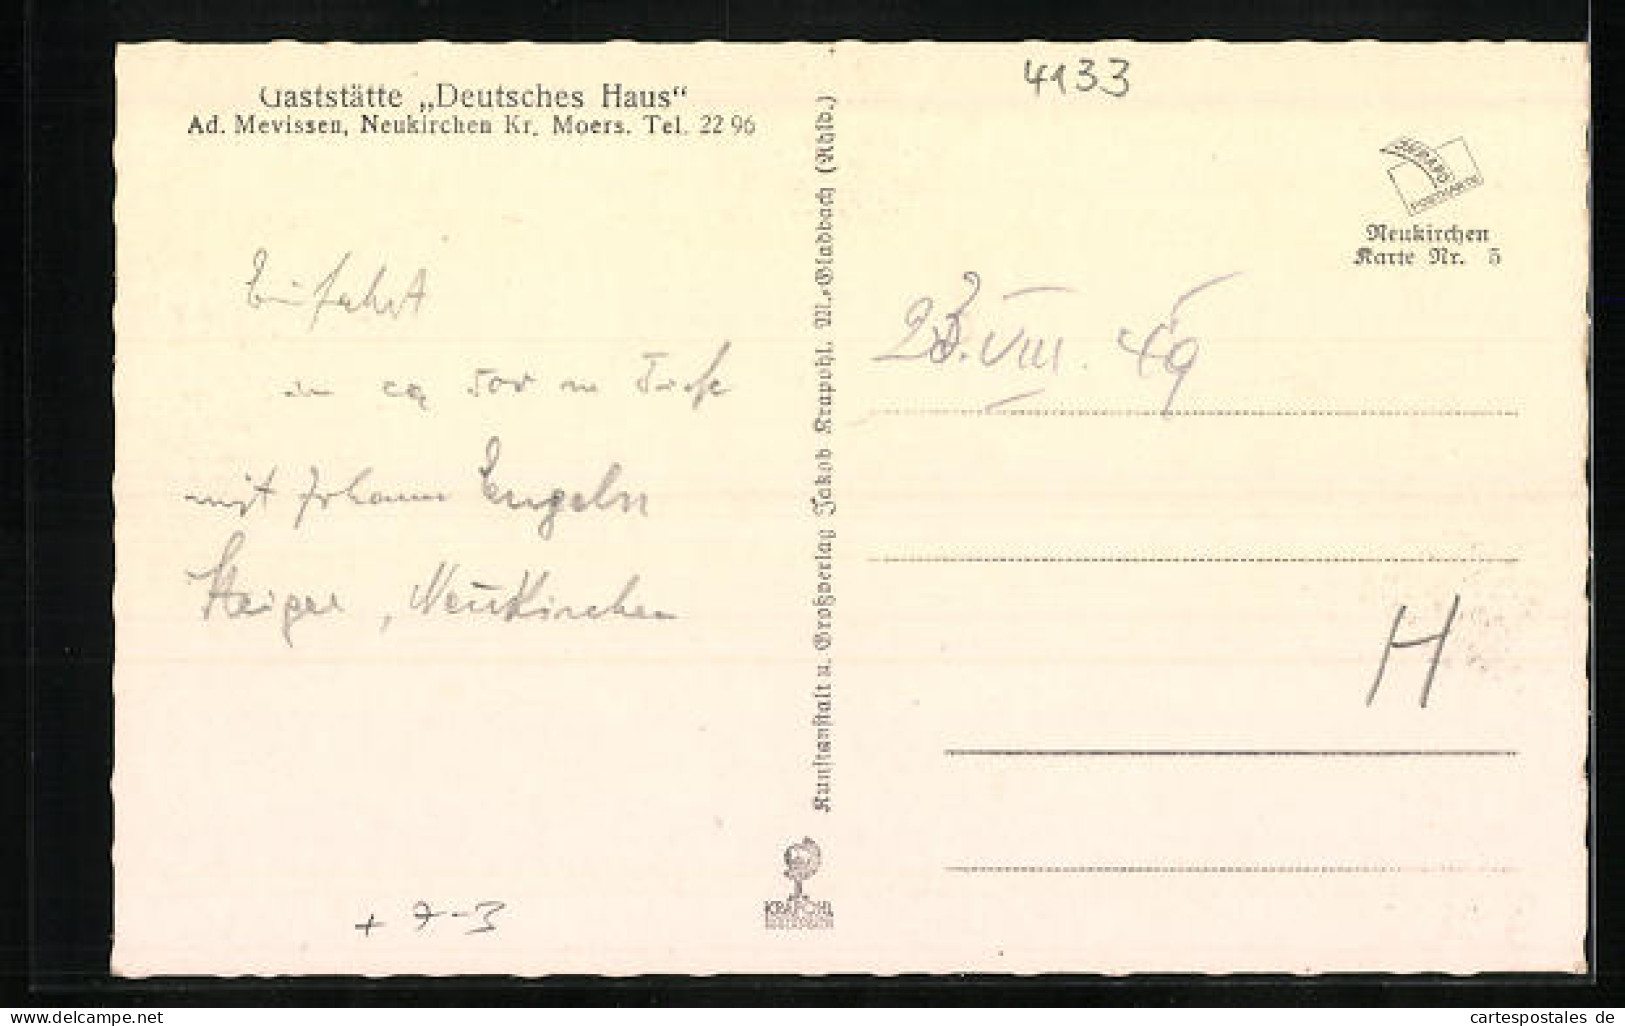 Gaststätte „Deutsches Haus“
Ad. Mevissen, Neukirchen Kr. Moers. Tel. 22 96
Einfahrt
in ca 500 m Tiefe
mit Johann Engeln
Steiger, Neukirchen
+ 7-3
Kunstanstalt u. Großverlag Jakob Krapohl. M.-Gladbach (Rhld.)
KRAPOHL
4133
POSTKARTE
Neukirchen
Karte Nr. 5
23. VIII. 49
H
delcampe.net
cartespostales de